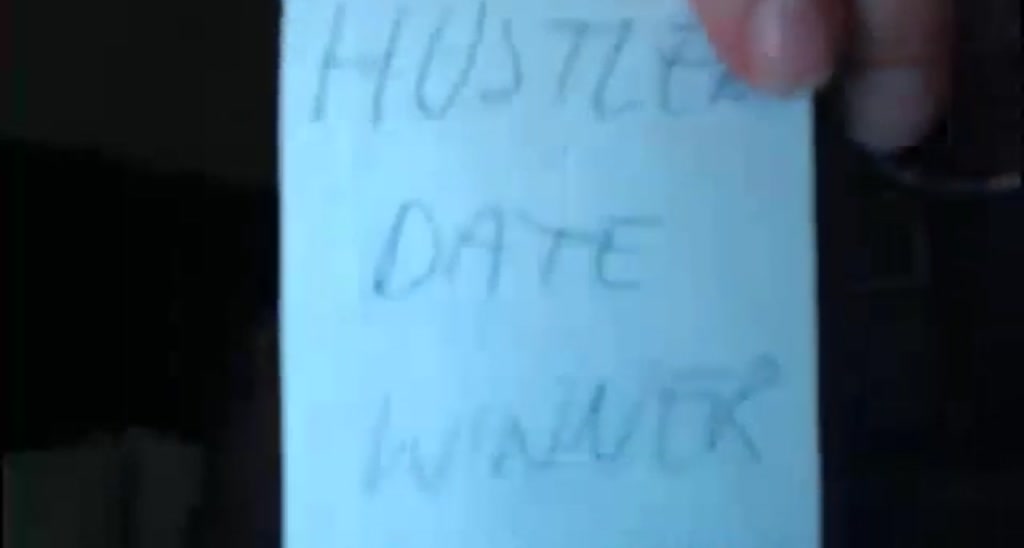 HUSTLER
DATE
WINNER